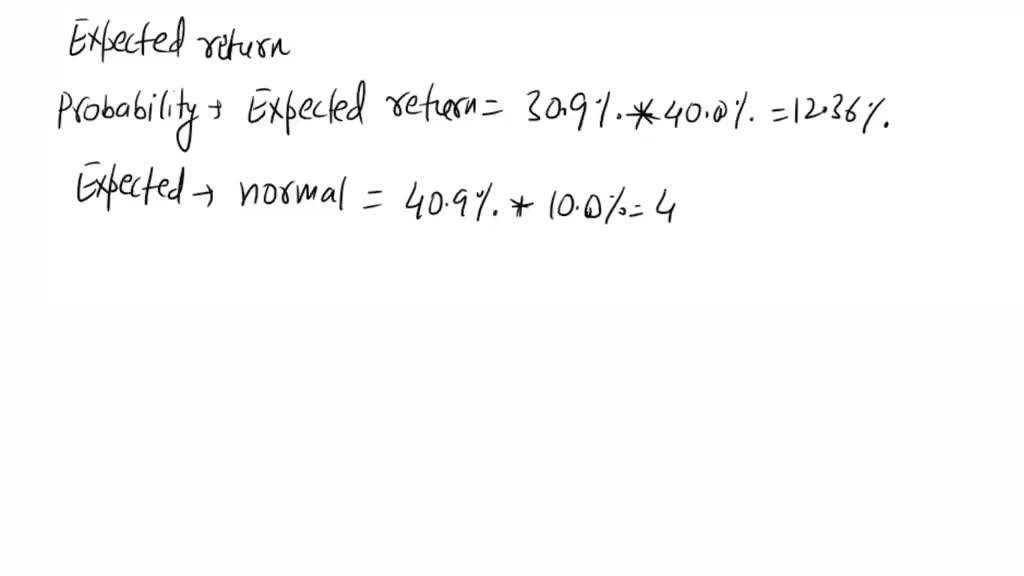 Expected return
Probability → Expected return = 30.9%. * 40.0%. = 12.36%.
Expected → normal = 40.9%. * 10.0% = 4